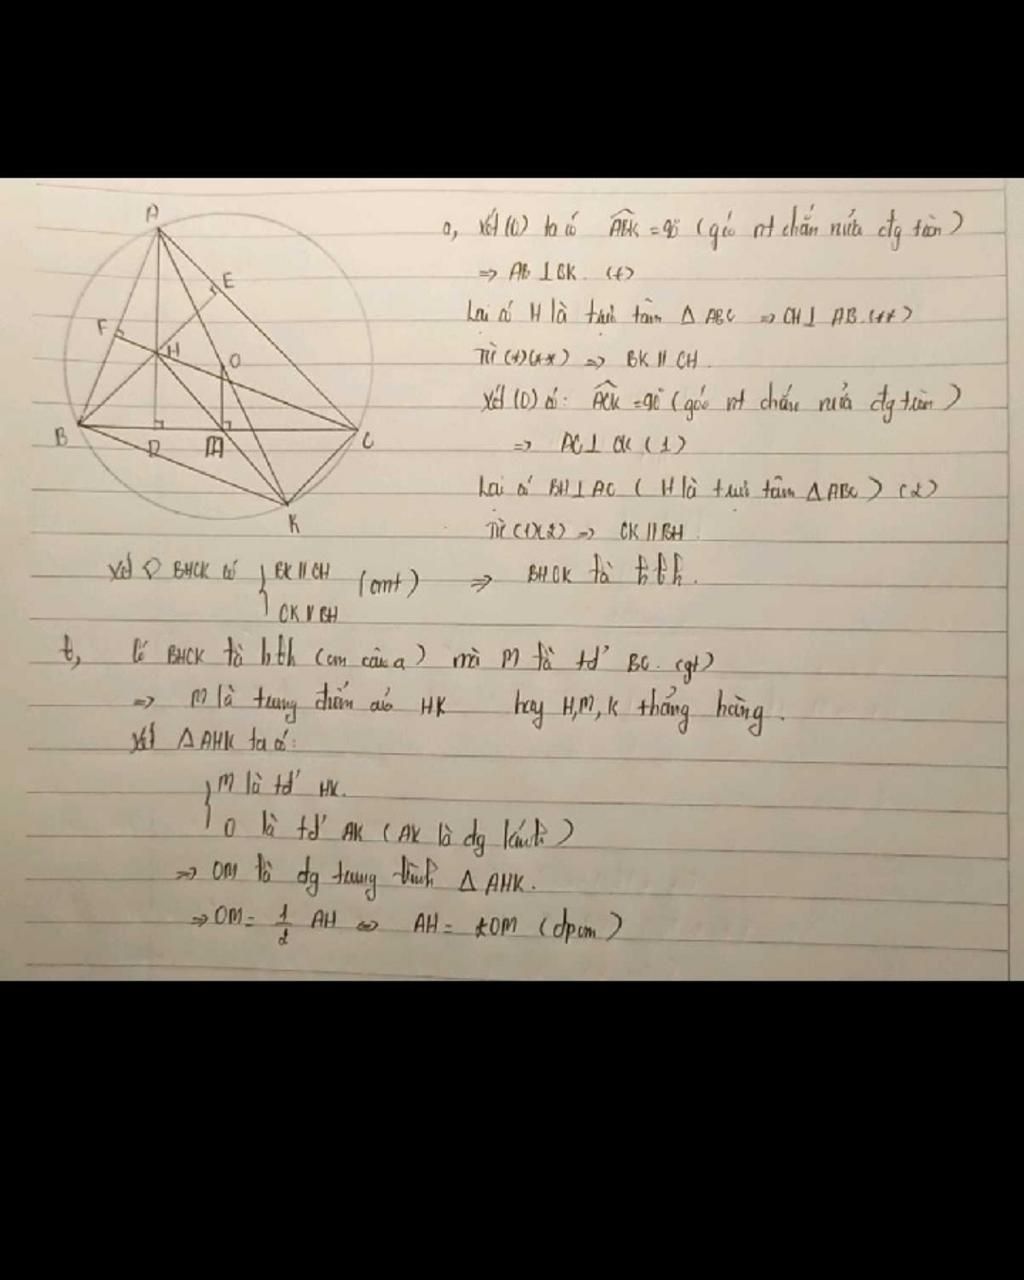 A
E
F
H
O
B
D
M
C
K
a, Xét (O) ta có ABK = 90° (góc nt chắn nửa đg tròn)
=> AB ⊥ BK. (*)
Lại có H là trực tâm Δ ABC => CH ⊥ AB (**)
Từ (*)(**) => BK // CH.
Xét (O) có: ACK = 90° (góc nt chắn nửa đg tròn)
=> AC ⊥ CK (1)
Lại có BH ⊥ AC ( H là trực tâm Δ ABC ) (2)
Từ (1)(2) => CK // BH.
Xét ◇ BHCK có { BK // CH (cmt) => BHCK là hbh.
CK // BH
b, Có BHCK là hbh (cm câu a) mà M là tđ' BC. (gt)
=> M là trung điểm của HK hay H, M, K thẳng hàng.
Xét Δ AHK ta có:
{ M là tđ' HK.
O là tđ' AK ( AK là đg kính )
=> OM là đg trung bình Δ AHK.
=> OM = 1/2 AH <=> AH = 2OM (đpcm)